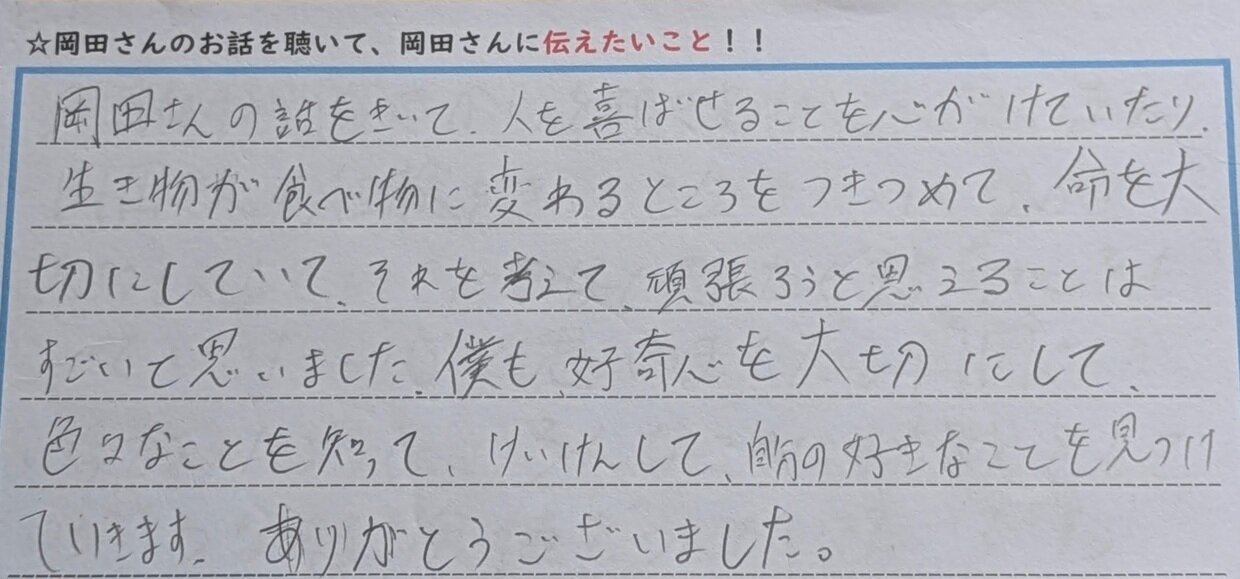 ☆岡田さんのお話を聴いて、岡田さんに伝えたいこと！！
岡田さんの話をきいて、人を喜ばせることを心がけていたり、
生き物が食べ物に変わるところをつきつめて、命を大
切にしていて、それを考えて、頑張ろうと思えることは
すごいと思いました。僕も、好奇心を大切にして、
色々なことを知って、けいけんして、自分の好きなことを見つけ
ていきます。ありがとうございました。